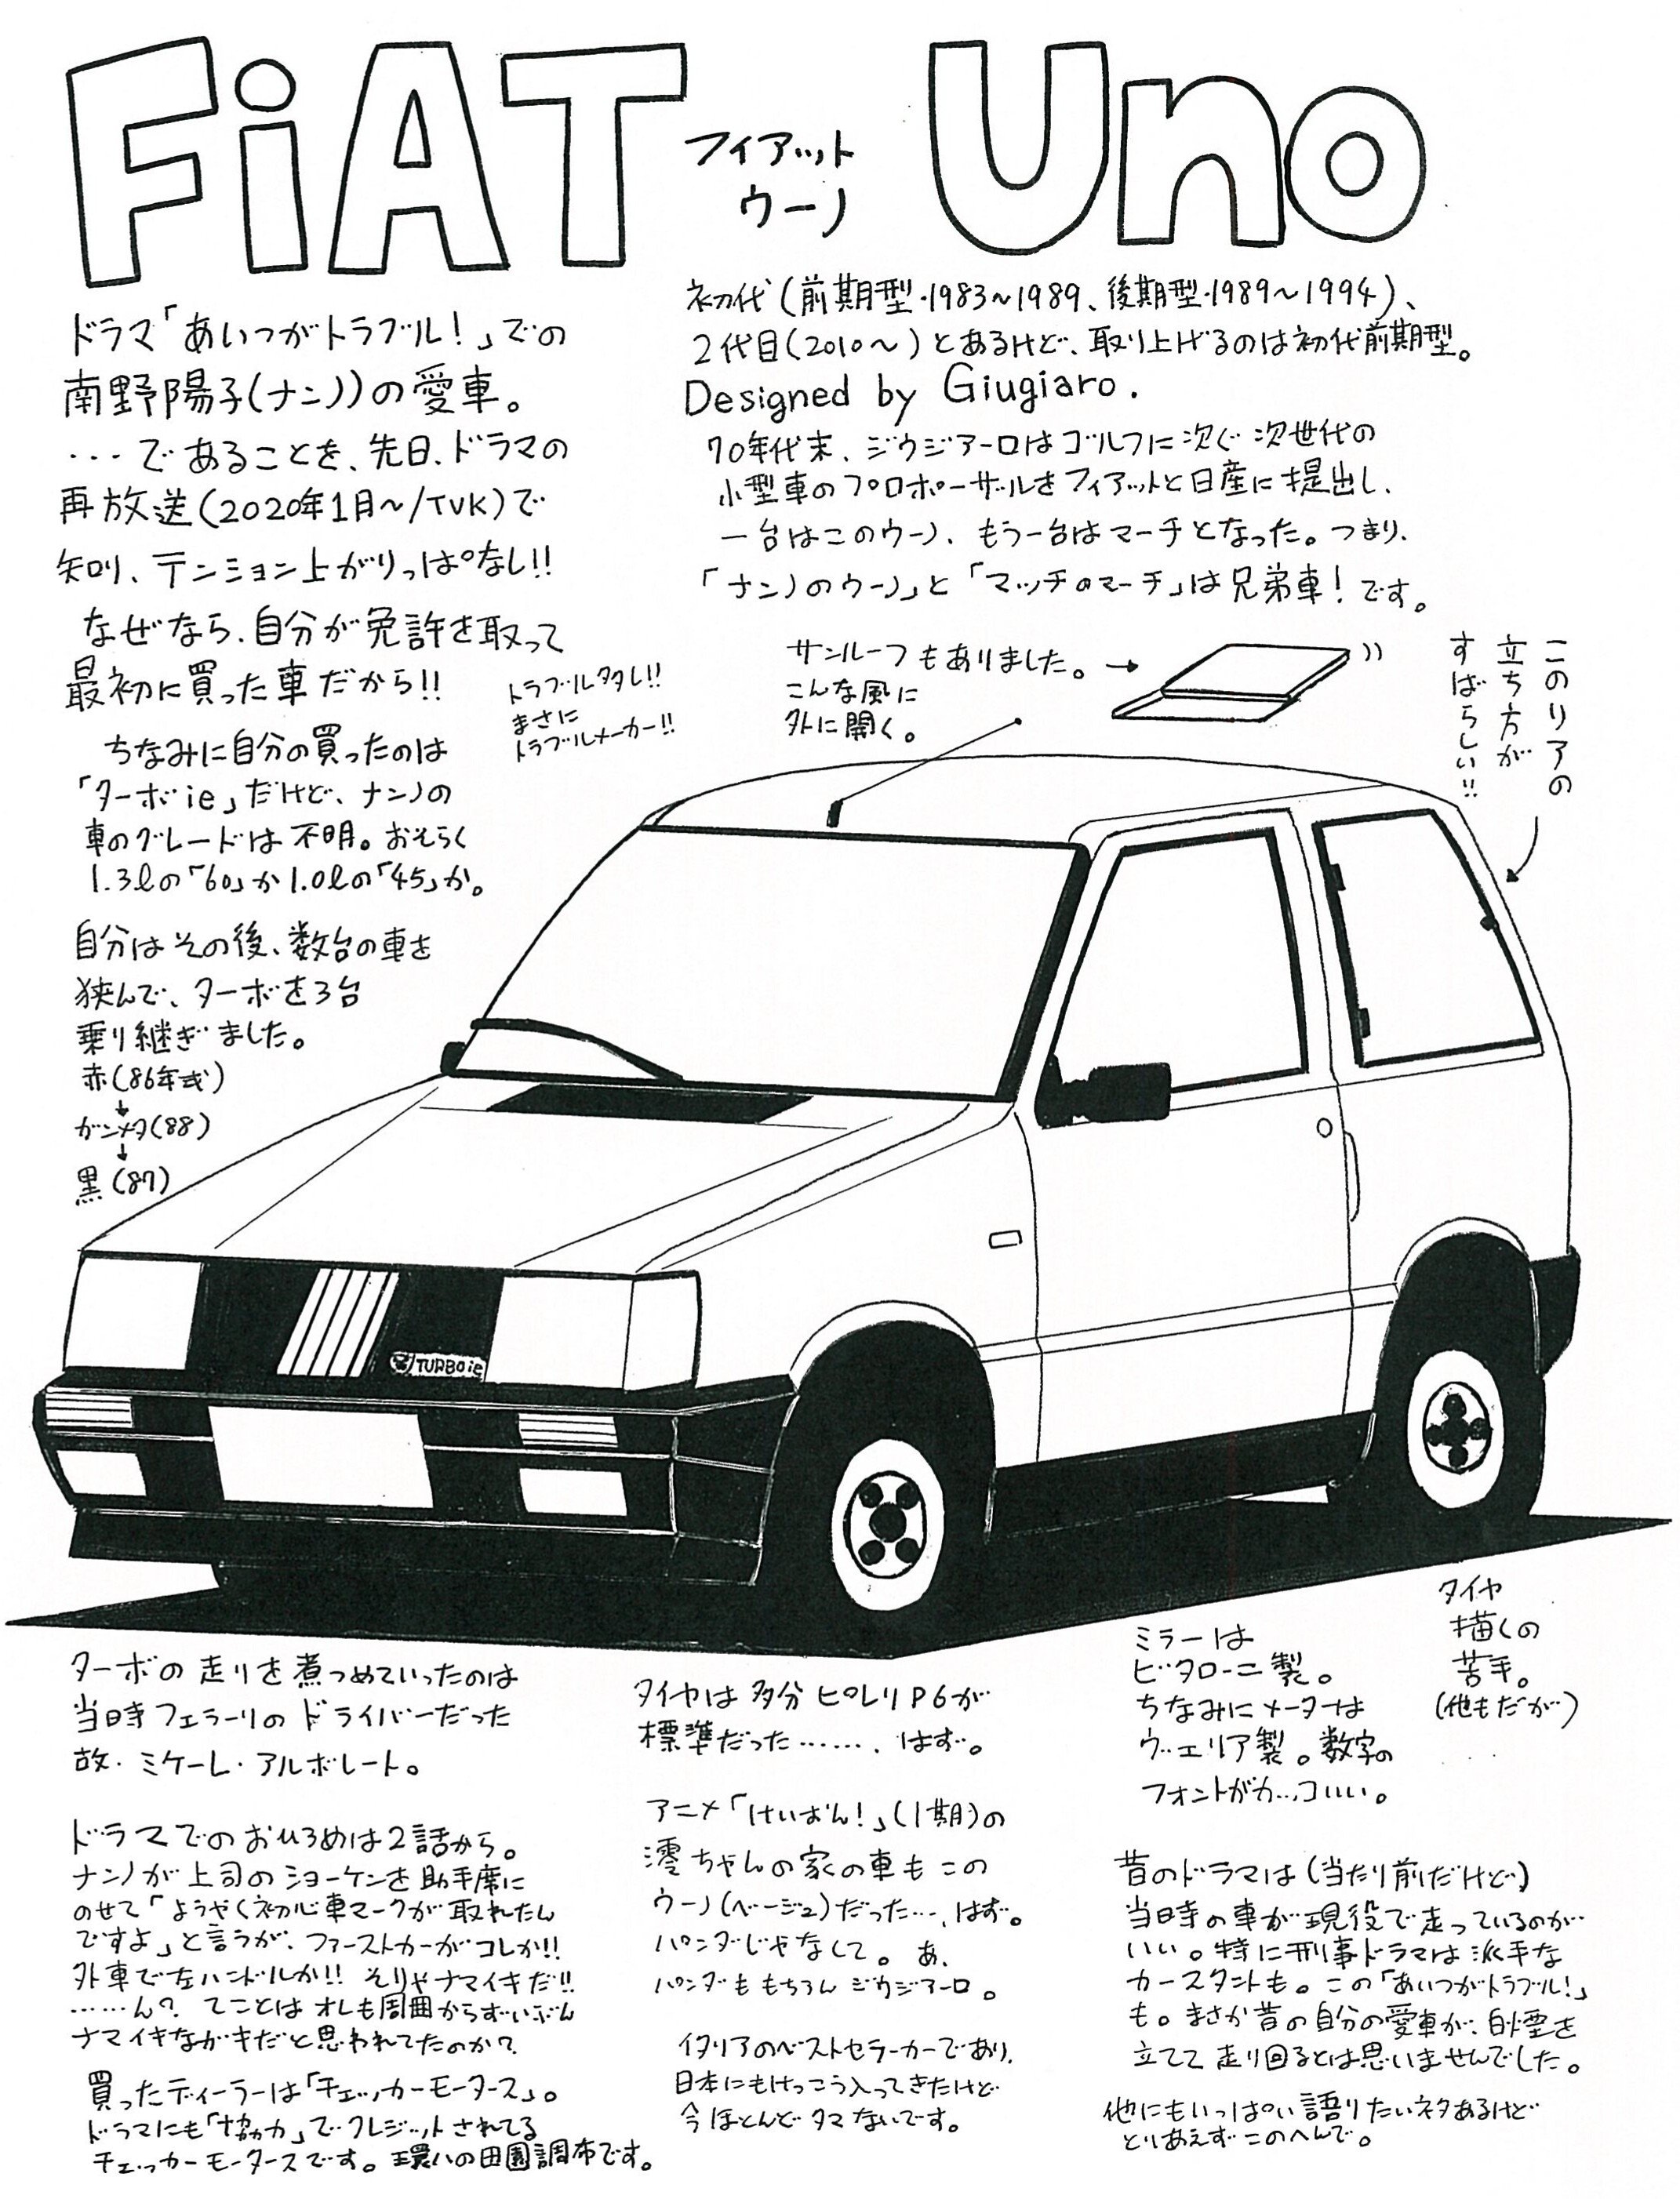 FiAT
フィアット
ウーノ
Uno
ドラマ「あいつがトラブル!」での
南野陽子(ナンノ)の愛車。
…であることを、先日、ドラマの
再放送(2020年1月〜/TVK)で
知り、テンション上がりっぱなし!!
なぜなら、自分が免許を取って
最初に買った車だから!!
トラブル多し!!
まさに
トラブルメーカー!!
ちなみに自分の買ったのは
「ターボie」だけど、ナンノの
車のグレードは不明。おそらく
1.3ℓの「60」か1.0ℓの「45」か。
自分はその後、数台の車を
挟んで、ターボを3台
乗り継ぎました。
赤(86年式)
↓
ガンメタ(88)
↓
黒(87)
初代(前期型・1983〜1989、後期型・1989〜1994)、
2代目(2010〜)とあるけど、取り上げるのは初代前期型。
Designed by Giugiaro.
70年代末、ジウジアーロはゴルフに次ぐ次世代の
小型車のプロポーザルをフィアットと日産に提出し、
一台はこのウーノ、もう一台はマーチとなった。つまり、
「ナンノのウーノ」と「マッチのマーチ」は兄弟車!です。
サンルーフもありました。→
こんな風に
外に開く。
このリアの
立ち方が
すばらしい!!
TURBO ie
ターボの走りを煮つめていったのは
当時フェラーリのドライバーだった
故・ミケーレ・アルボレート。
ドラマでのおひろめは2話から。
ナンノが上司のショーケンを助手席に
のせて「ようやく初心車マークが取れたん
ですよ」と言うが、ファーストカーがコレか!!
外車で左ハンドルか!! そりゃナマイキだ!!
……ん? てことはオレも周囲からずいぶん
ナマイキなガキだと思われてたのか?
買ったディーラーは「チェッカーモータース」。
ドラマにも「協力」でクレジットされてる
チェッカーモータースです。環八の田園調布です。
タイヤは多分ピレリP6が
標準だった……、はず。
アニメ「けいおん!」(1期)の
澪ちゃんの家の車もこの
ウーノ(ベージュ)だった…、はず。
パンダじゃなくて。あ、
パンダももちろんジウジアーロ。
イタリアのベストセラーカーであり、
日本にもけっこう入ってきたけど
今ほとんどタマないです。
ミラーは
ビタローニ製。
ちなみにメーターは
ヴェリア製。数字の
フォントがカッコいい。
タイヤ
描くの
苦手。
(他もだが)
昔のドラマは(当たり前だけど)
当時の車が現役で走っているのが
いい。特に刑事ドラマは派手な
カースタントも。この「あいつがトラブル!」
も。まさか昔の自分の愛車が、白煙を
立てて走り回るとは思いませんでした。
他にもいっぱい語りたいネタあるけど
とりあえずこのへんで。